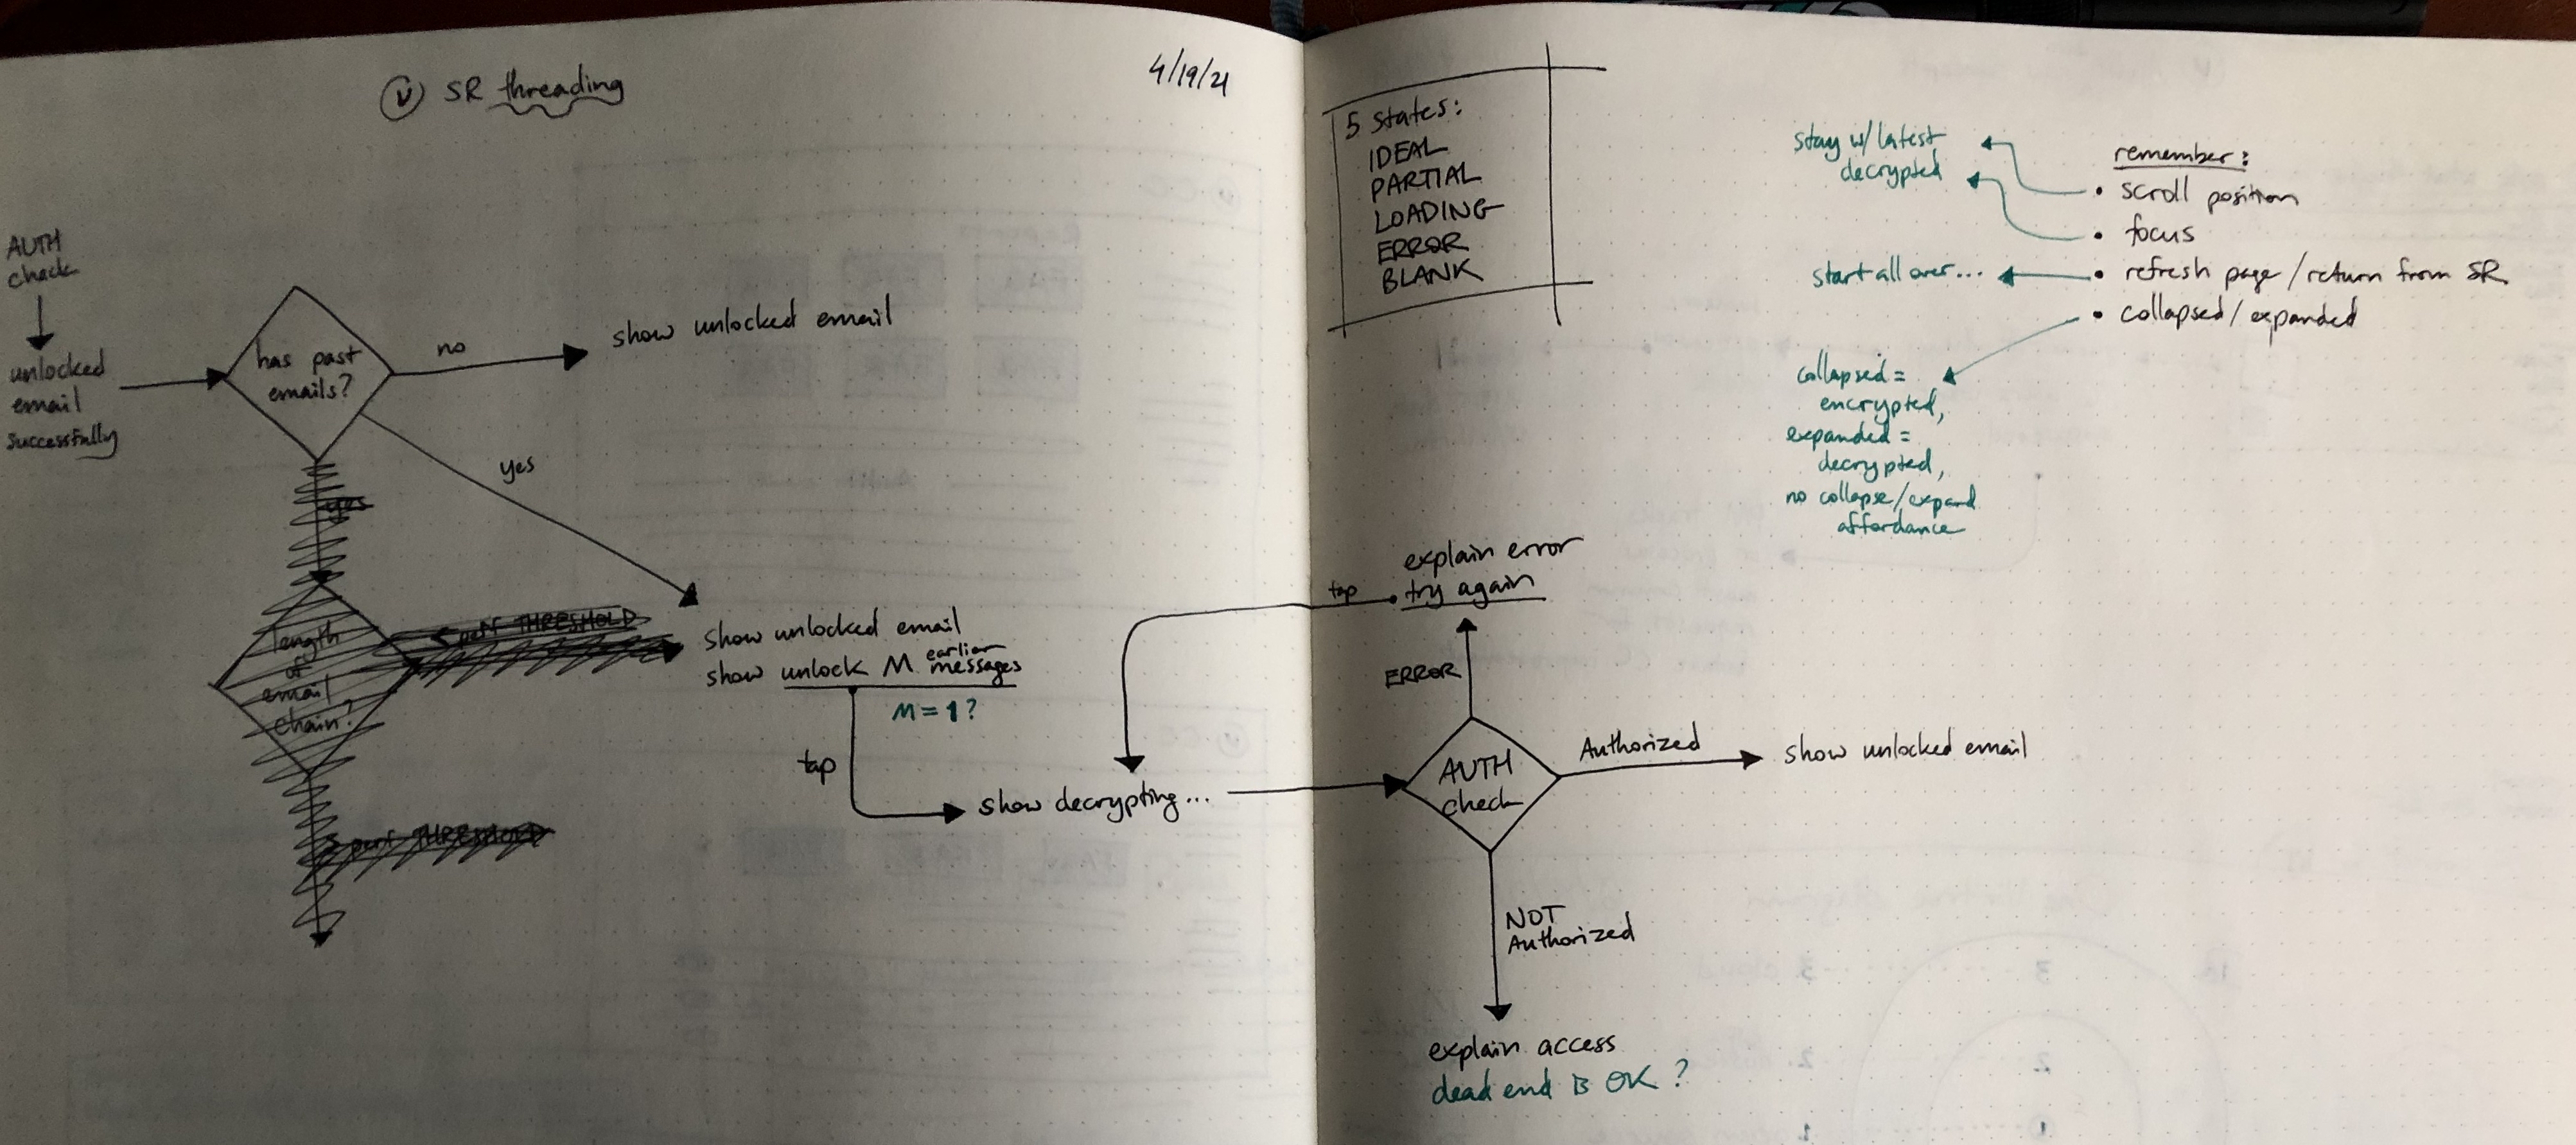 V SR threading
4/19/21
AUTH
check
unlocked
email
successfully
has past
emails?
no
show unlocked email
yes
yes
length
of
email
chain?
perf THRESHOLD
perf THRESHOLD
show unlocked email
show unlock M earlier messages
M = 1?
tap
show decrypting...
5 states:
IDEAL
PARTIAL
LOADING
ERROR
BLANK
stay w/ latest
decrypted
start all over...
remember:
• scroll position
• focus
• refresh page / return from SR
• collapsed / expanded
collapsed =
encrypted,
expanded =
decrypted,
no collapse/expand
affordance
explain error
try again
tap
ERROR
AUTH
check
Authorized
show unlocked email
NOT
Authorized
explain access
dead end is OK?